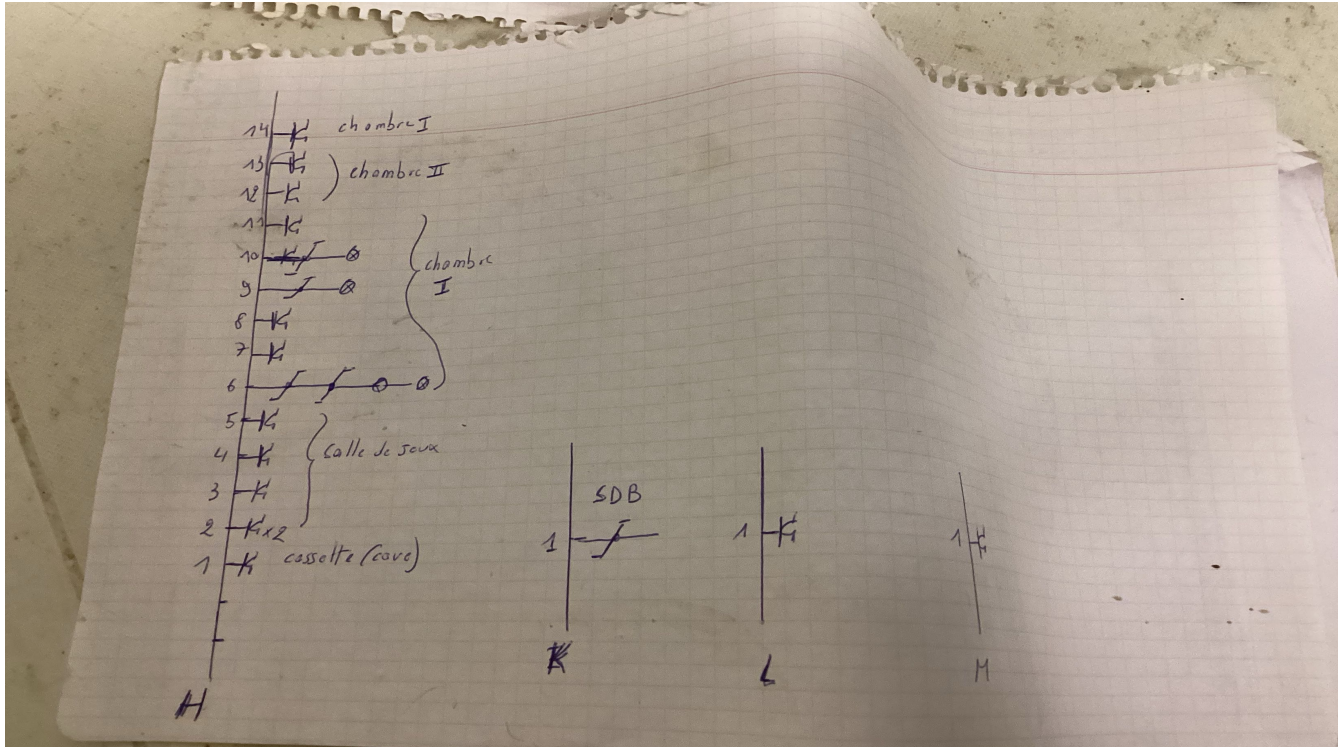 14 chambre I
13
chambre II
12
11
10
chambre
I
9
8
7
6
5
4 Salle de jeux
3
2 x2
1 cassotte (cave)
H
SDB
1
K
1
L
1
M